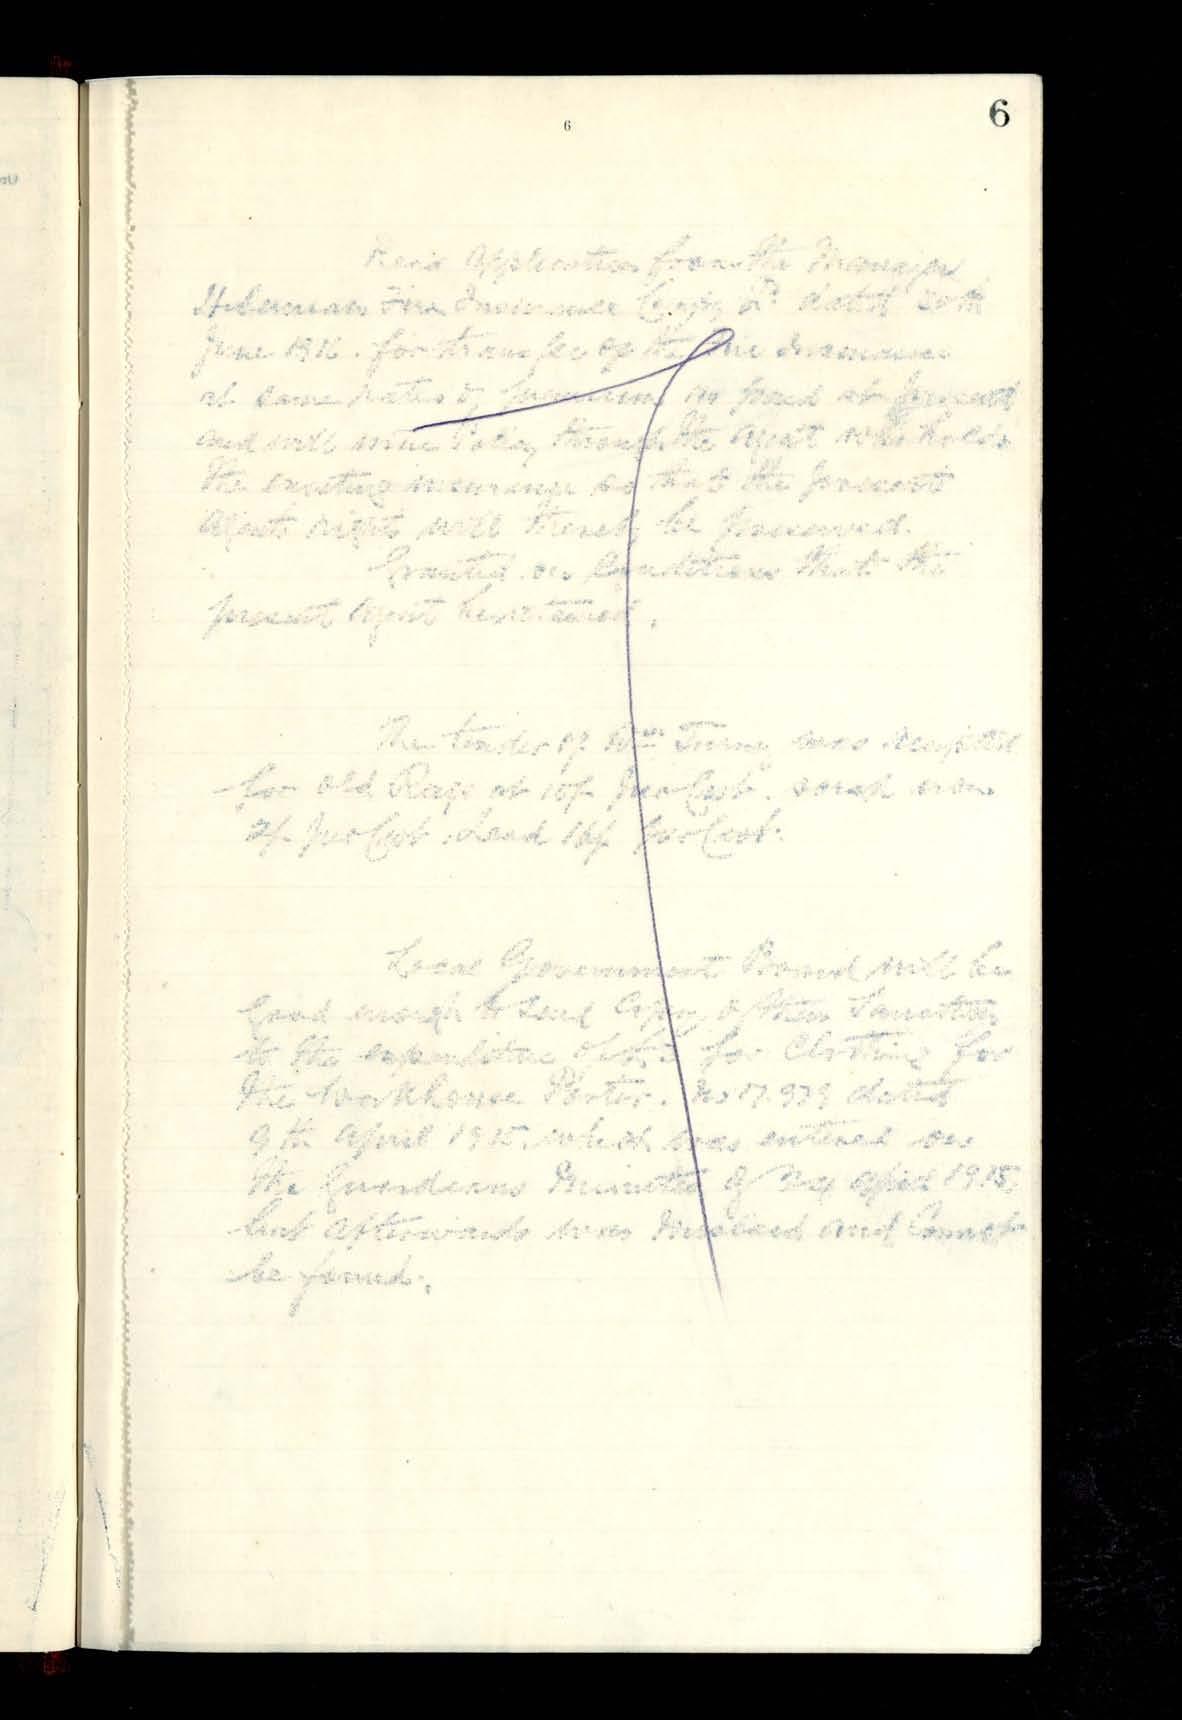 6
6
Read Application from the Manager
Hibernian Fire Insurance Compy Ld dated 20th
June 1916. for transfer of the Fire Insurance
at same rates & premium as paid at present
and will issue Policy through the Agent who holds
the existing insurance so that the present
Agents rights will thereby be preserved.
Granted on Conditions that the
present Agent be retained.
The tender of Wm Turny was accepted
for old Rags at 10/- per Cwt. scrap iron
2/- per Cwt. Lead 16/- per Cwt.
Local Government Board will be
good enough to send Copy of their Sanction
to the expenditure of for Clothing for
the Workhouse Porter. No 17.979 dated
9th April 1915. which was entered on
the Guardians Minutes of April 1915.
but afterwards was mislaid and Cannot
be found.